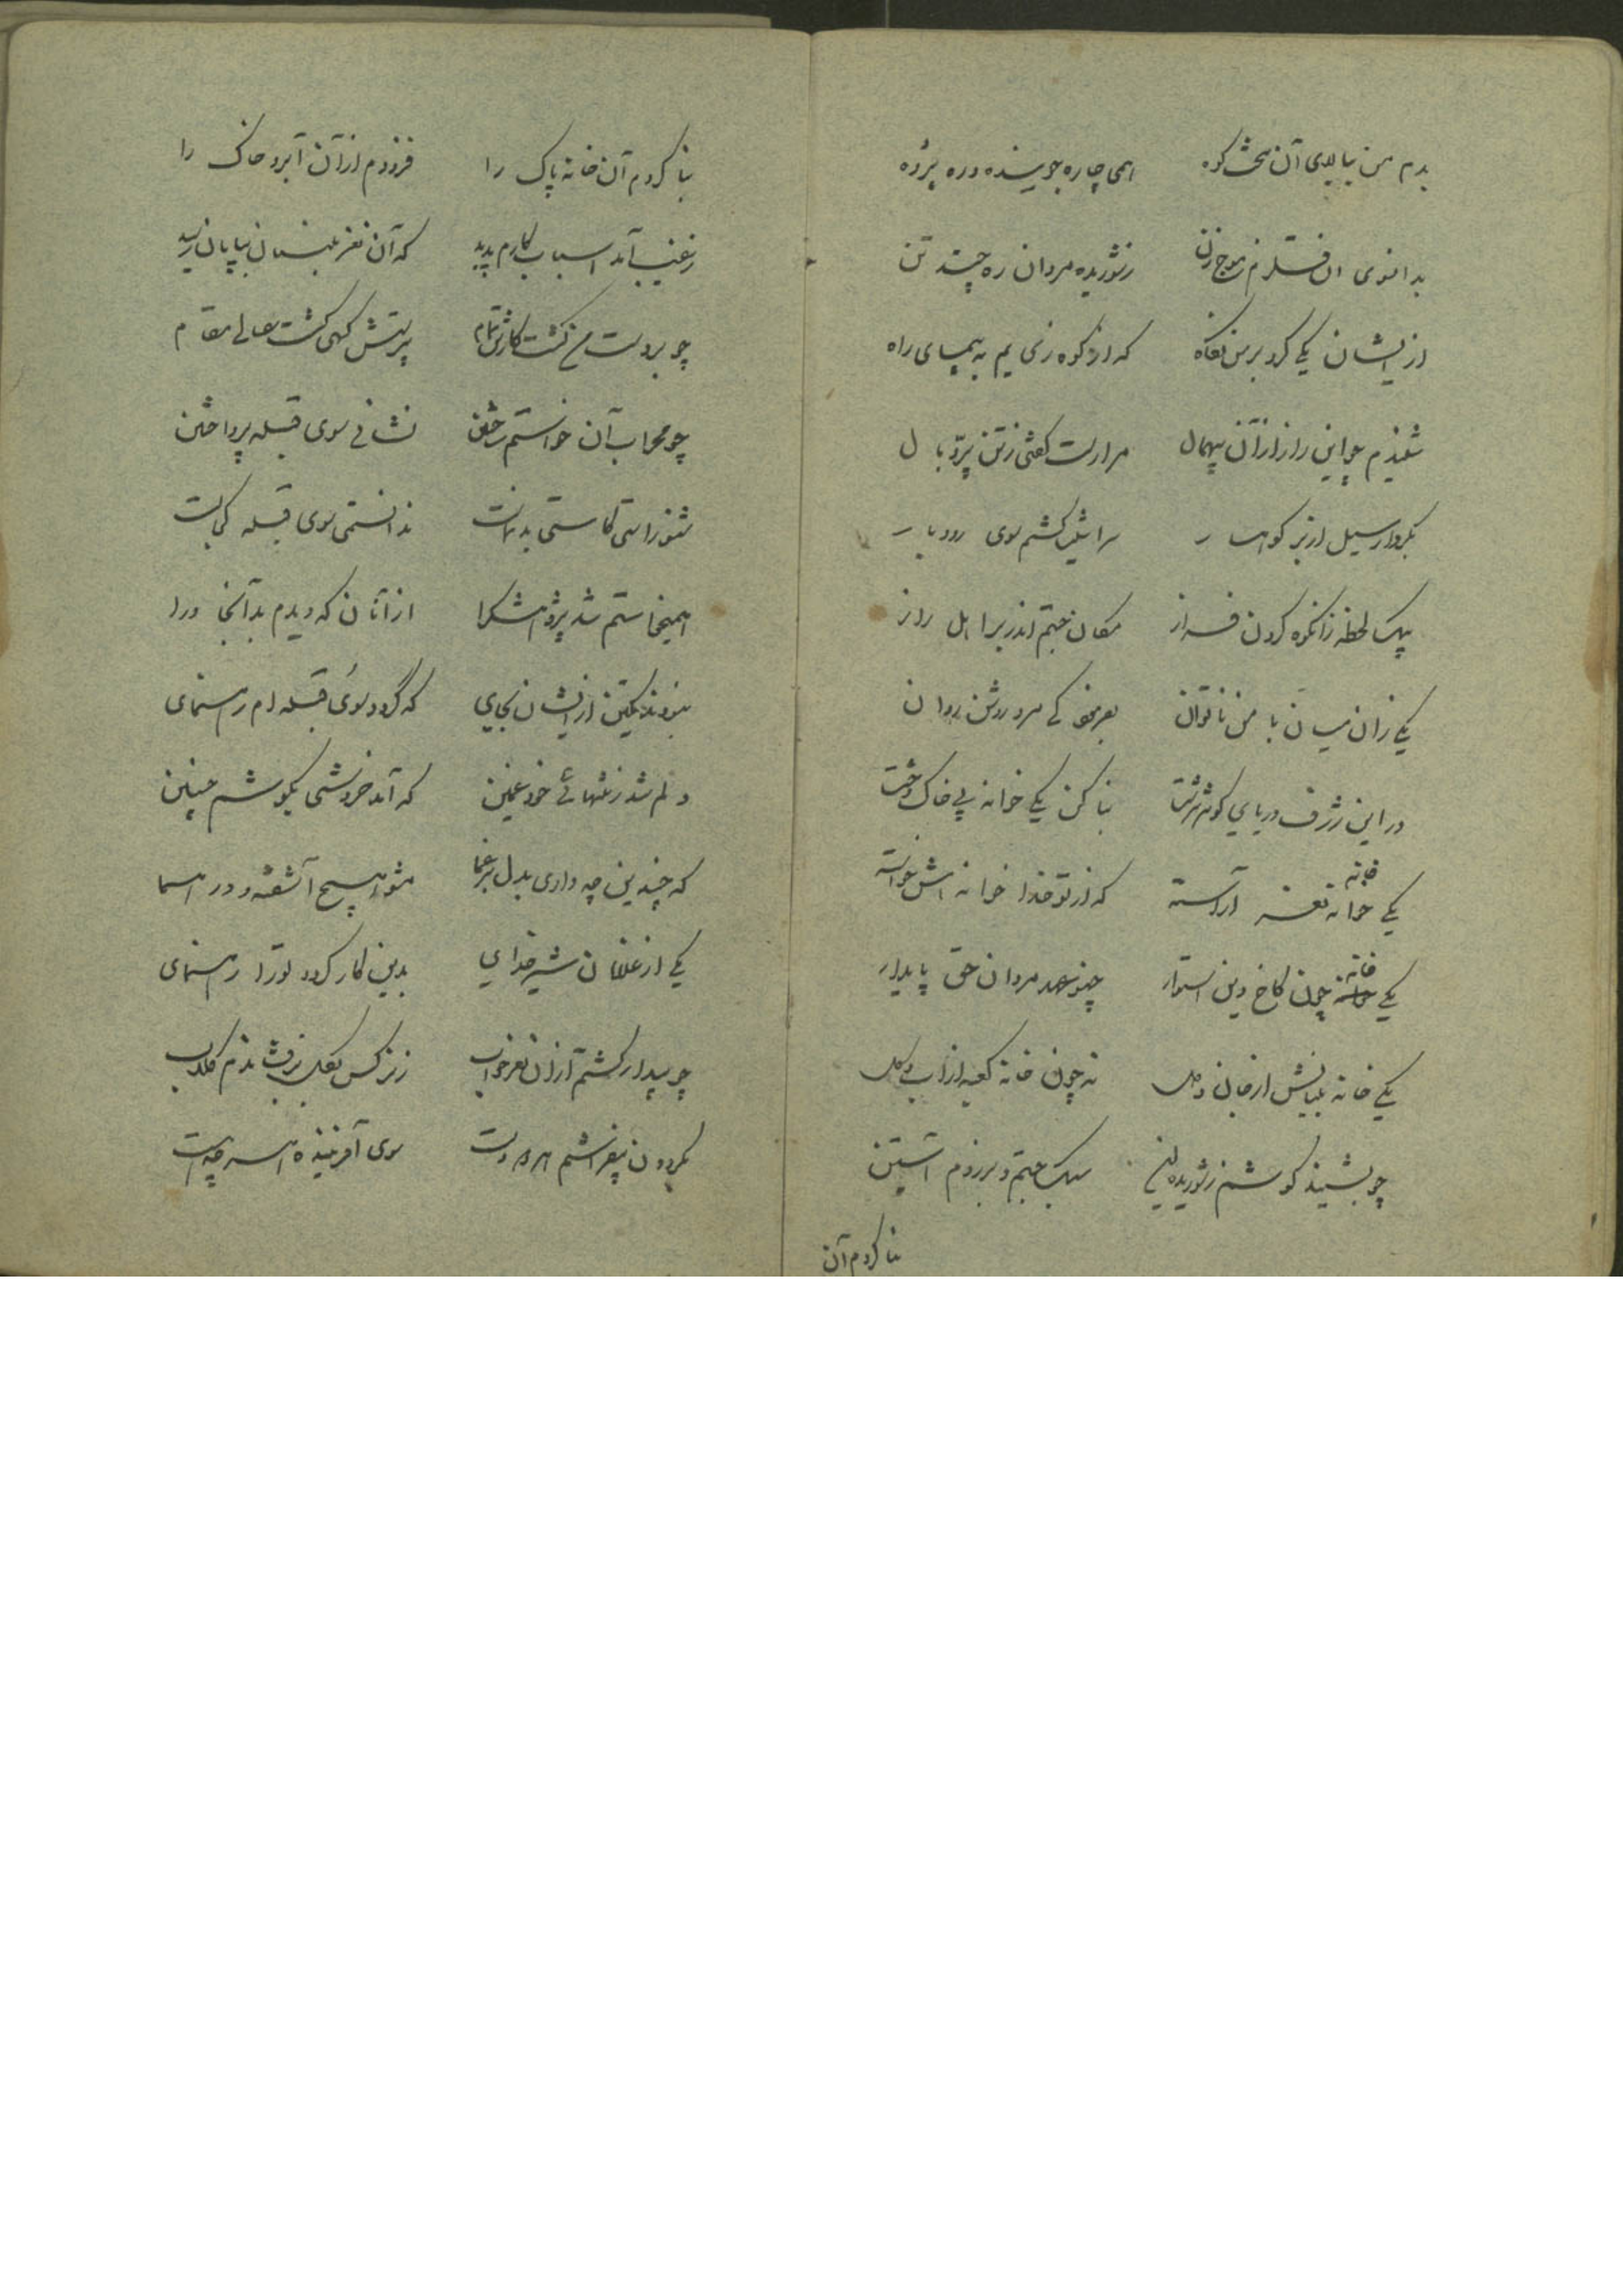 بدم من ببالای آن سخت کوه همی چاره جوینده و ره پژوه
بدانسوی آن قلزم موج زن ز شوریده مردان ره چند تن
از ایشان یکی کرد بر من نگاه که از کوه بزیر به پیمای راه
شنیدم چو این راز از آن بیهمال مرا رست گفتی ز تن پر و بال
بکردار سیل از بر کوهسار سراشیب گشتم سوی رودبار
بیک لحظه زانکوه گردن فراز مکان جستم اندر بر اهل راز
یکی زان میان با من ناتوان بفرمود کی مرد روشن روان
در این ژرف دریای کوثر سرشت بنا کن یکی خوانه بی خاک و خشت
یکی خوانه نغز آراسته که از تو خدا خوانه اش خواسته
خانه
یکی خوانه چون کاخ دین استوار چنو عهد مردان حق پایدار
خانه
یکی خانه بنیانش از جان و دل نه چون خانه کعبه از آب و گل
چو بشنید گوشم ز شوریده این سبک جستم و برزدم آستین
بنا کردم آن
بنا کردم آن خانه پاک را فزودم از آن آبرو خاک را
ز غیب آمد اسباب کارم پدید که آن نغز بنیان بپایان رسید
چو بر دست من گشت کارش تمام پرستش گهی گشت عالی مقام
چو محراب آن خواستم ساختن نشانی سوی قبله پرداختن
ندانستمی سوی قبله کجاست
همیخواستم شد پژوهش گرا از آنان که دیدم بدانجا ورا
نبودند یکتن از ایشان بجای که گردد سوی قبله ام رهنمای
دلم شد ز تنهائی خود غمین که آمد خروشی بگوشم چنین
که چندین چه داری بدل بر غما مشو هیچ آشفته و در هما
یکی از غلامان شیر خدای بدین کار گردد تو را رهنمای
چو بیدار گشتم از آن نغز خواب ز نرگس بگل برفشاندم گلاب
بگردون بیفراشتم هر دو دست سوی آفریننده هر چه هست